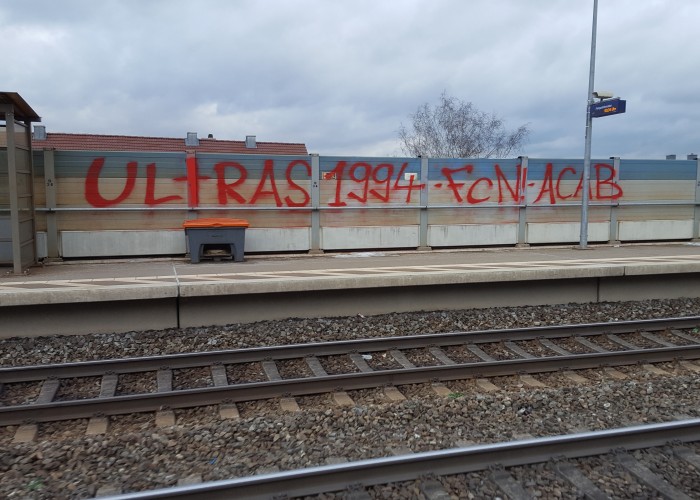 ULtRAS 1994 - FcN! - ACAB